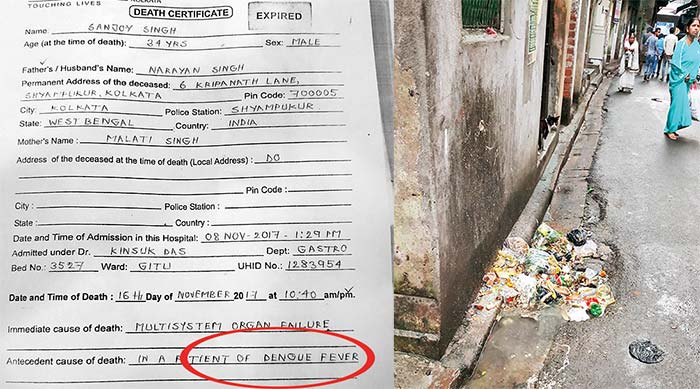 TOUCHING LIVES
KOLKATA
DEATH CERTIFICATE
EXPIRED
Name: SANJOY SINGH
Age (at the time of death): 34 YRS Sex: MALE
Father's / Husband's Name: NARAYAN SINGH
Permanent Address of the deceased: 6 KRIPANATH LANE,
SHYAMPUKUR, KOLKATA Pin Code: 700005
City: KOLKATA Police Station: SHYAMPUKUR
State: WEST BENGAL Country: INDIA
Mother's Name: MALATI SINGH
Address of the deceased at the time of death (Local Address): DO
Pin Code:
City: Police Station:
State: Country:
Date and Time of Admission in this Hospital: 08 NOV-2017 - 1:29 PM
Admitted under Dr. KINSUK DAS Dept: GASTRO
Bed No.: 3527 Ward: GITU UHID No.: 1283954
Date and Time of Death: 16th Day of NOVEMBER 2017 at 10:40 am/pm.
Immediate cause of death: MULTISYSTEM ORGAN FAILURE
Antecedent cause of death: IN A PATIENT OF DENGUE FEVER